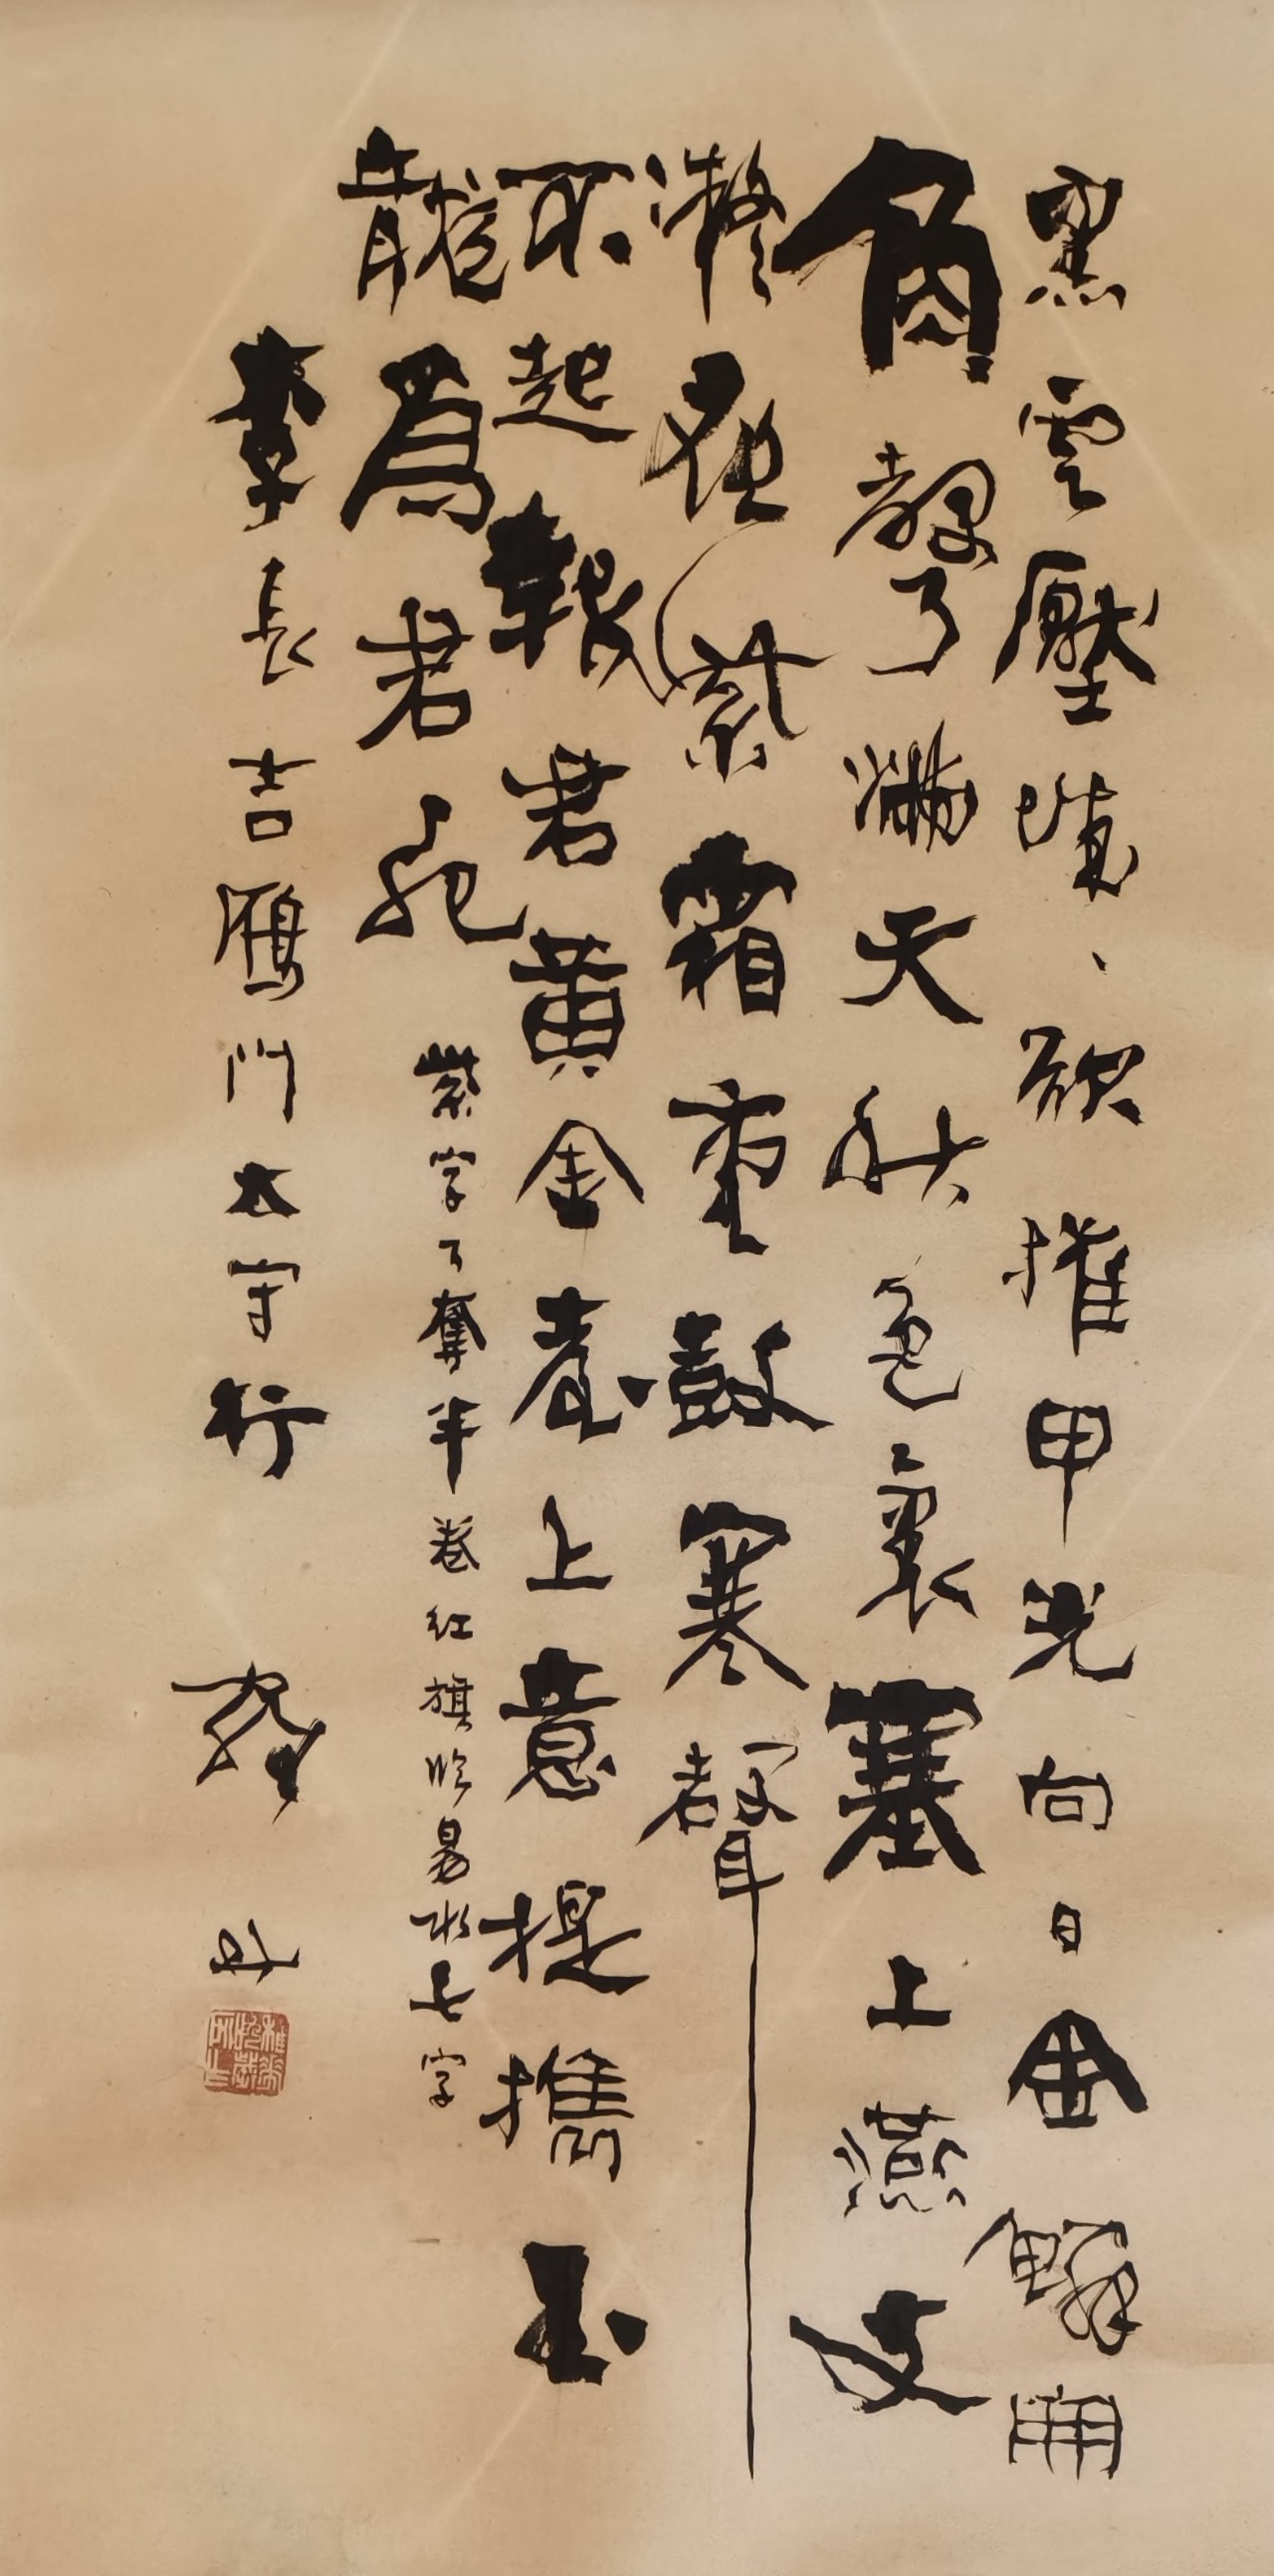 黑雲壓城、欲摧甲光向日金鱗開
角聲了滿天秋色裏塞上燕支
凝夜紫霜重鼓寒聲
不起報君黃金臺上意提攜玉
龍爲君死
紫字了奪半卷紅旗臨易水七字
李長吉鴈門太守行